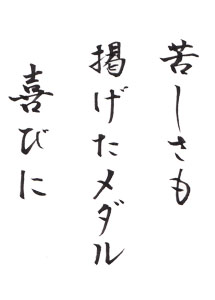 苦しさも
掲げたメダル
喜びに